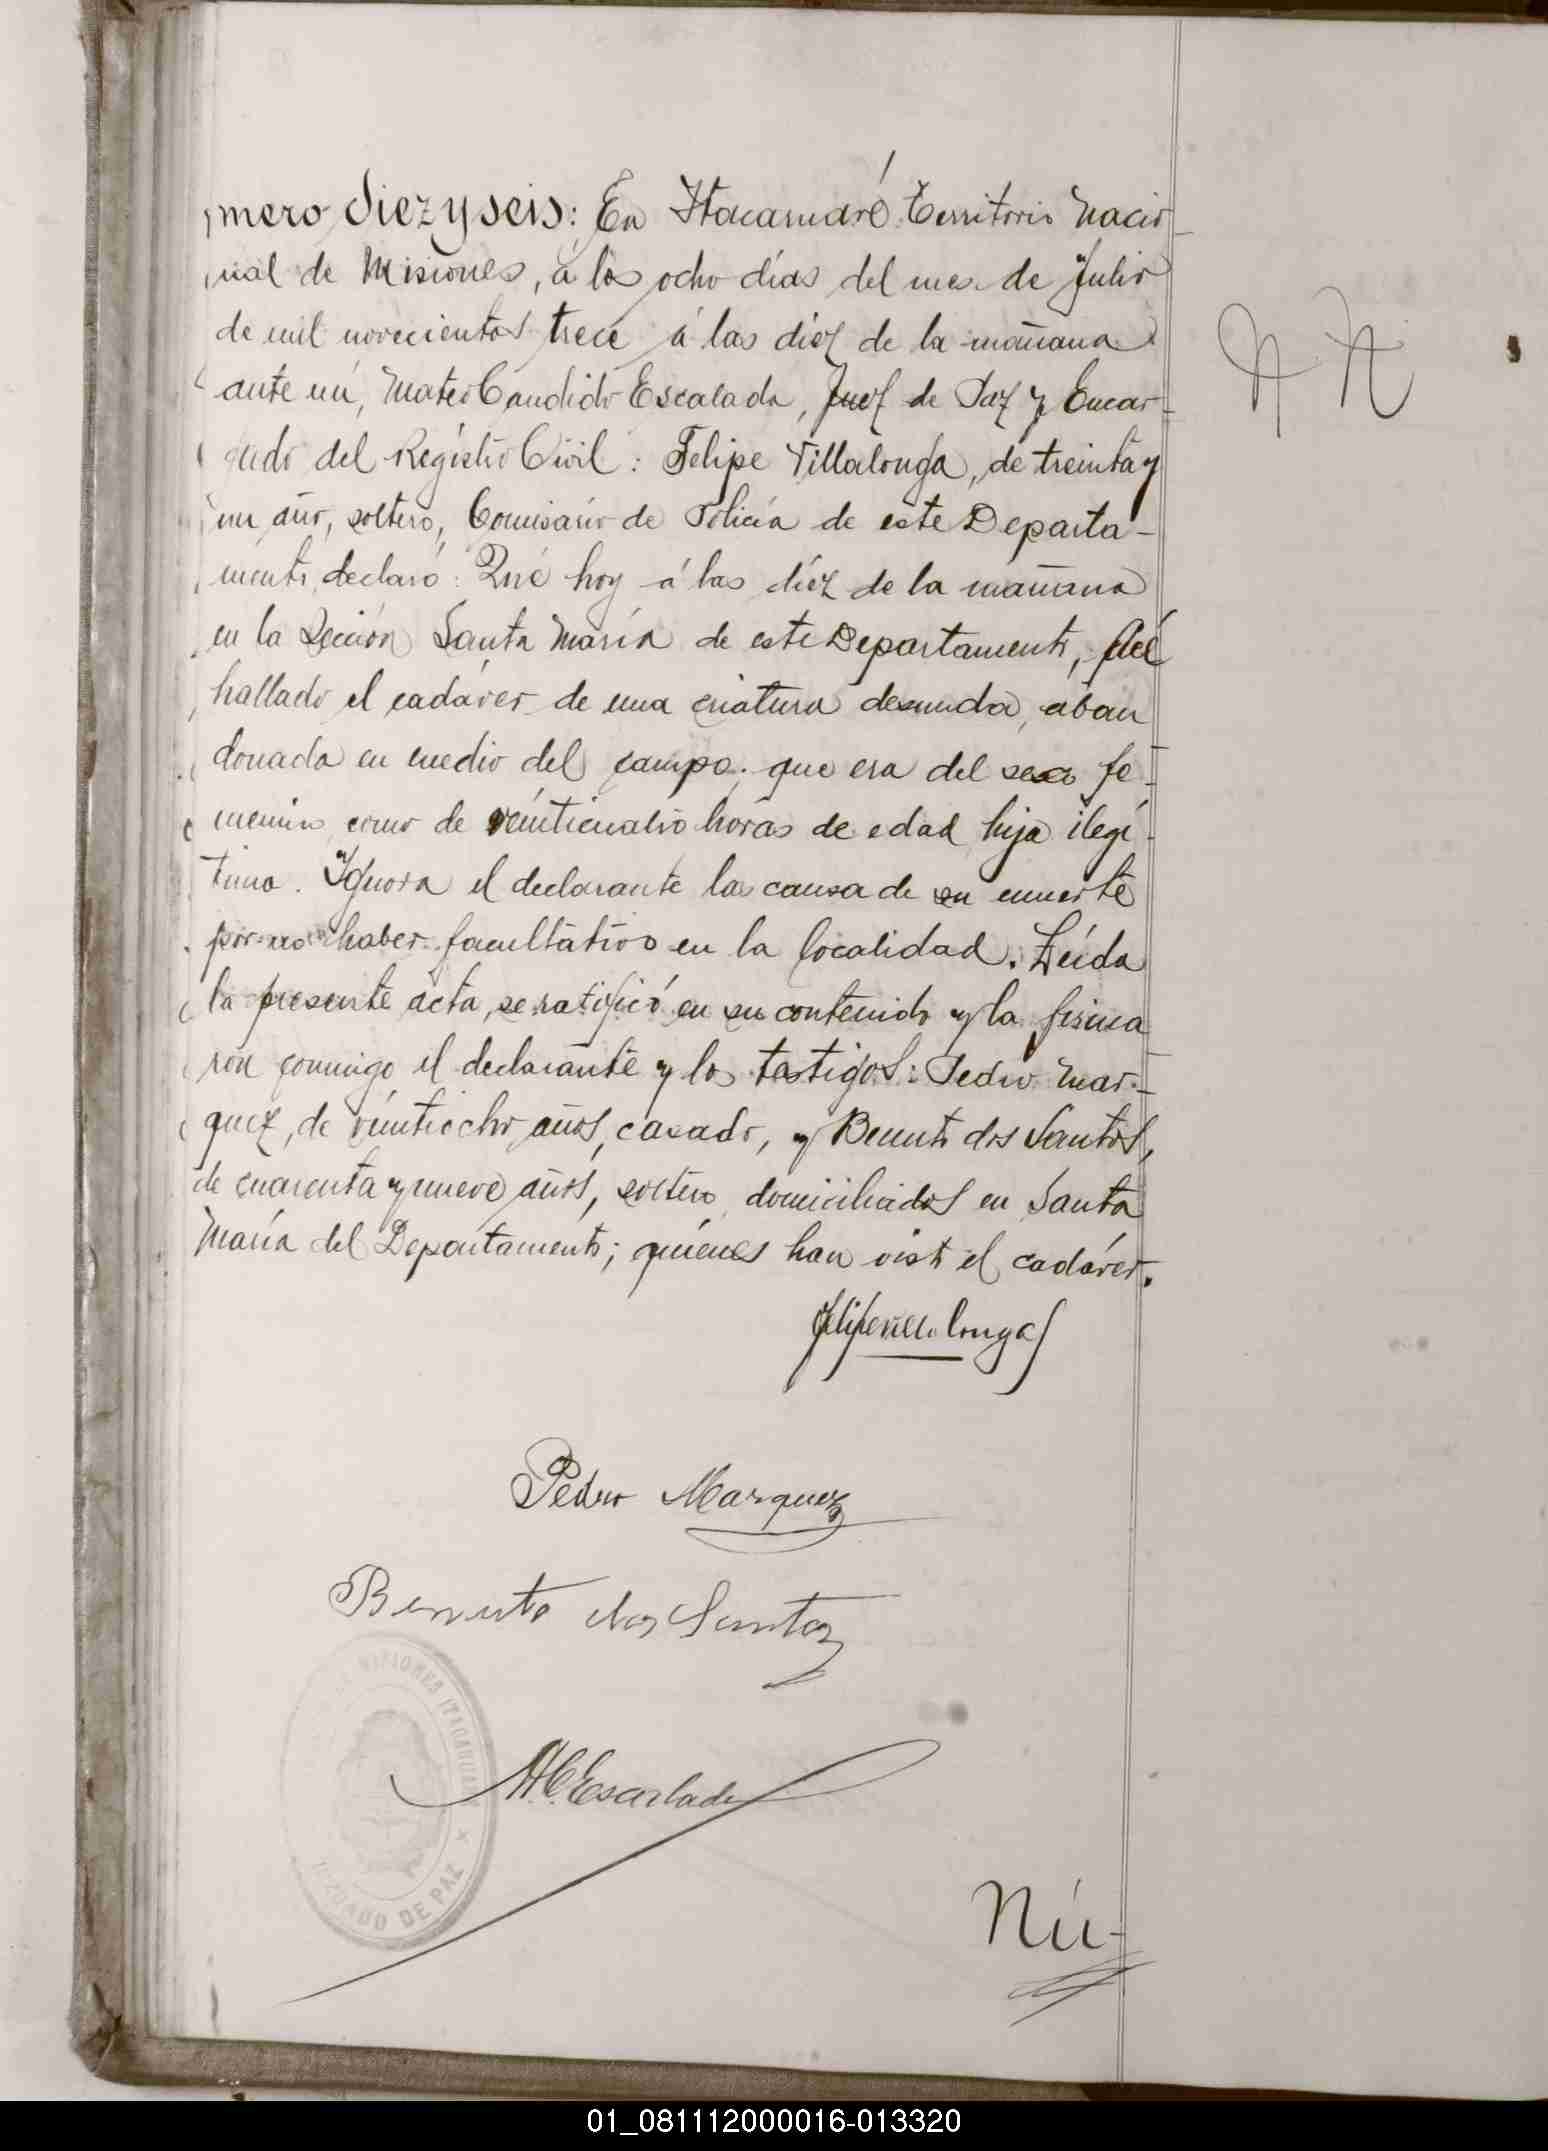 mero diez y seis: En Itacaruaré Territorio Nacio-
nal de Misiones, á los ocho días del mes de Julio
de mil novecientos trece á las diez de la mañana
ante mí, Mateo Candido Escalada, Juez de Paz y Encar-
gado del Registro Civil: Felipe Villalonga, de treinta y
un año, soltero, Comisario de Policía de este Departa-
mento, declaró: Qué hoy á las diéz de la mañana
en la Sección Santa María de este Departamento, fué
hallado el cadáver de una criatura desnuda, aban
donada en medio del campo; que era del sexo fe-
menino, como de veinticuatro horas de edad, hija ilegí-
tima. Ignora el declarante la causa de su muerte
por no haber facultativo en la localidad. Leída
la presente acta, se ratificó en su contenido y la firma
ron conmigo el declarante y los testigos: Pedro Mar-
quez, de veintiocho años, casado, y Benuto dos Santos,
de cuarenta y nueve años, soltero, domiciliados en Santa
María del Departamento; quiénes han visto el cadáver.
N N
Felipe Villalonga
Pedro Marquez
Benuto dos Santos
MISIONES ITACARUARE
JUZGADO DE PAZ
M.C. Escalada
Nú-
01_081112000016-013320